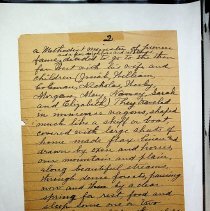 2
a Methodist Minister & pioneer
family decided to go to the then
far West with his wife and
children (Josiah, William
Coleman, Nicholas, Harvy
Morgan, Mary, Nancy, Sarah
and Elizabeth) They traveled
in enormous wagons shaped
much like a skiff or boat
covered with large sheets of
home made flax linen and
drawn by oxen and horses,
over mountain and plain,
along beautiful streams
through dense forests, pausing
now and then by a clear
spring for rest, food and
sleep some one or two